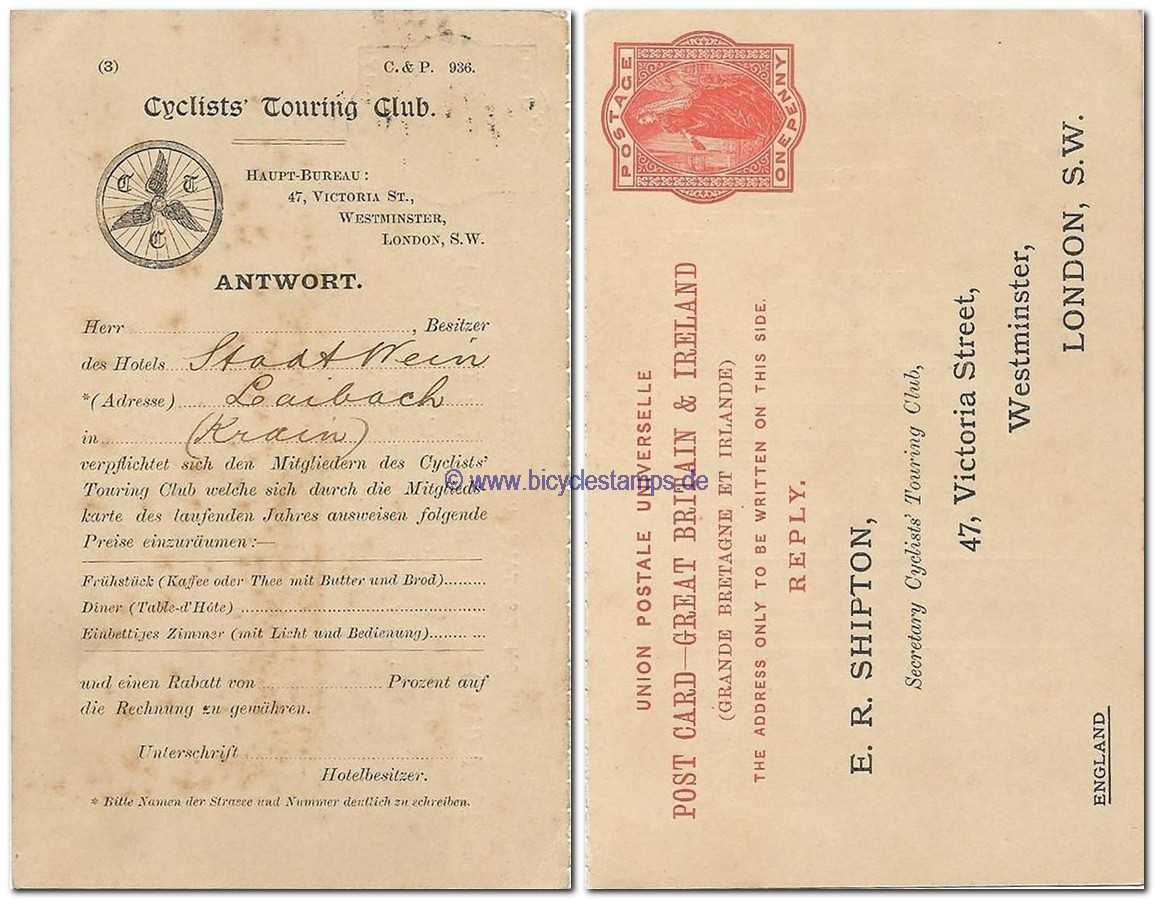 (3) C. & P. 936.
Cyclists' Touring Club.
C T C
HAUPT-BUREAU:
47, VICTORIA ST.,
WESTMINSTER,
LONDON, S.W.
ANTWORT.
Herr ........, Besitzer
des Hotels Stadt Wein
*(Adresse) Laibach
in (Krain)
verpflichtet sich den Mitgliedern des Cyclists'
Touring Club welche sich durch die Mitglieds-
karte des laufenden Jahres ausweisen folgende
Preise einzuräumen:—
Frühstück (Kaffee oder Thee mit Butter und Brod)........
Diner (Table-d'Hôte) ........
Einbettiges Zimmer (mit Licht und Bedienung)........
und einen Rabatt von ........ Prozent auf
die Rechnung zu gewähren.
Unterschrift ........
Hotelbesitzer.
* Bitte Namen der Strasse und Nummer deutlich zu schreiben.
© www.bicyclestamps.de
POSTAGE
ONE PENNY
UNION POSTALE UNIVERSELLE
POST CARD—GREAT BRITAIN & IRELAND
(GRANDE BRETAGNE ET IRLANDE)
THE ADDRESS ONLY TO BE WRITTEN ON THIS SIDE.
REPLY.
E. R. SHIPTON,
Secretary Cyclists' Touring Club,
47, Victoria Street,
Westminster,
LONDON, S.W.
ENGLAND